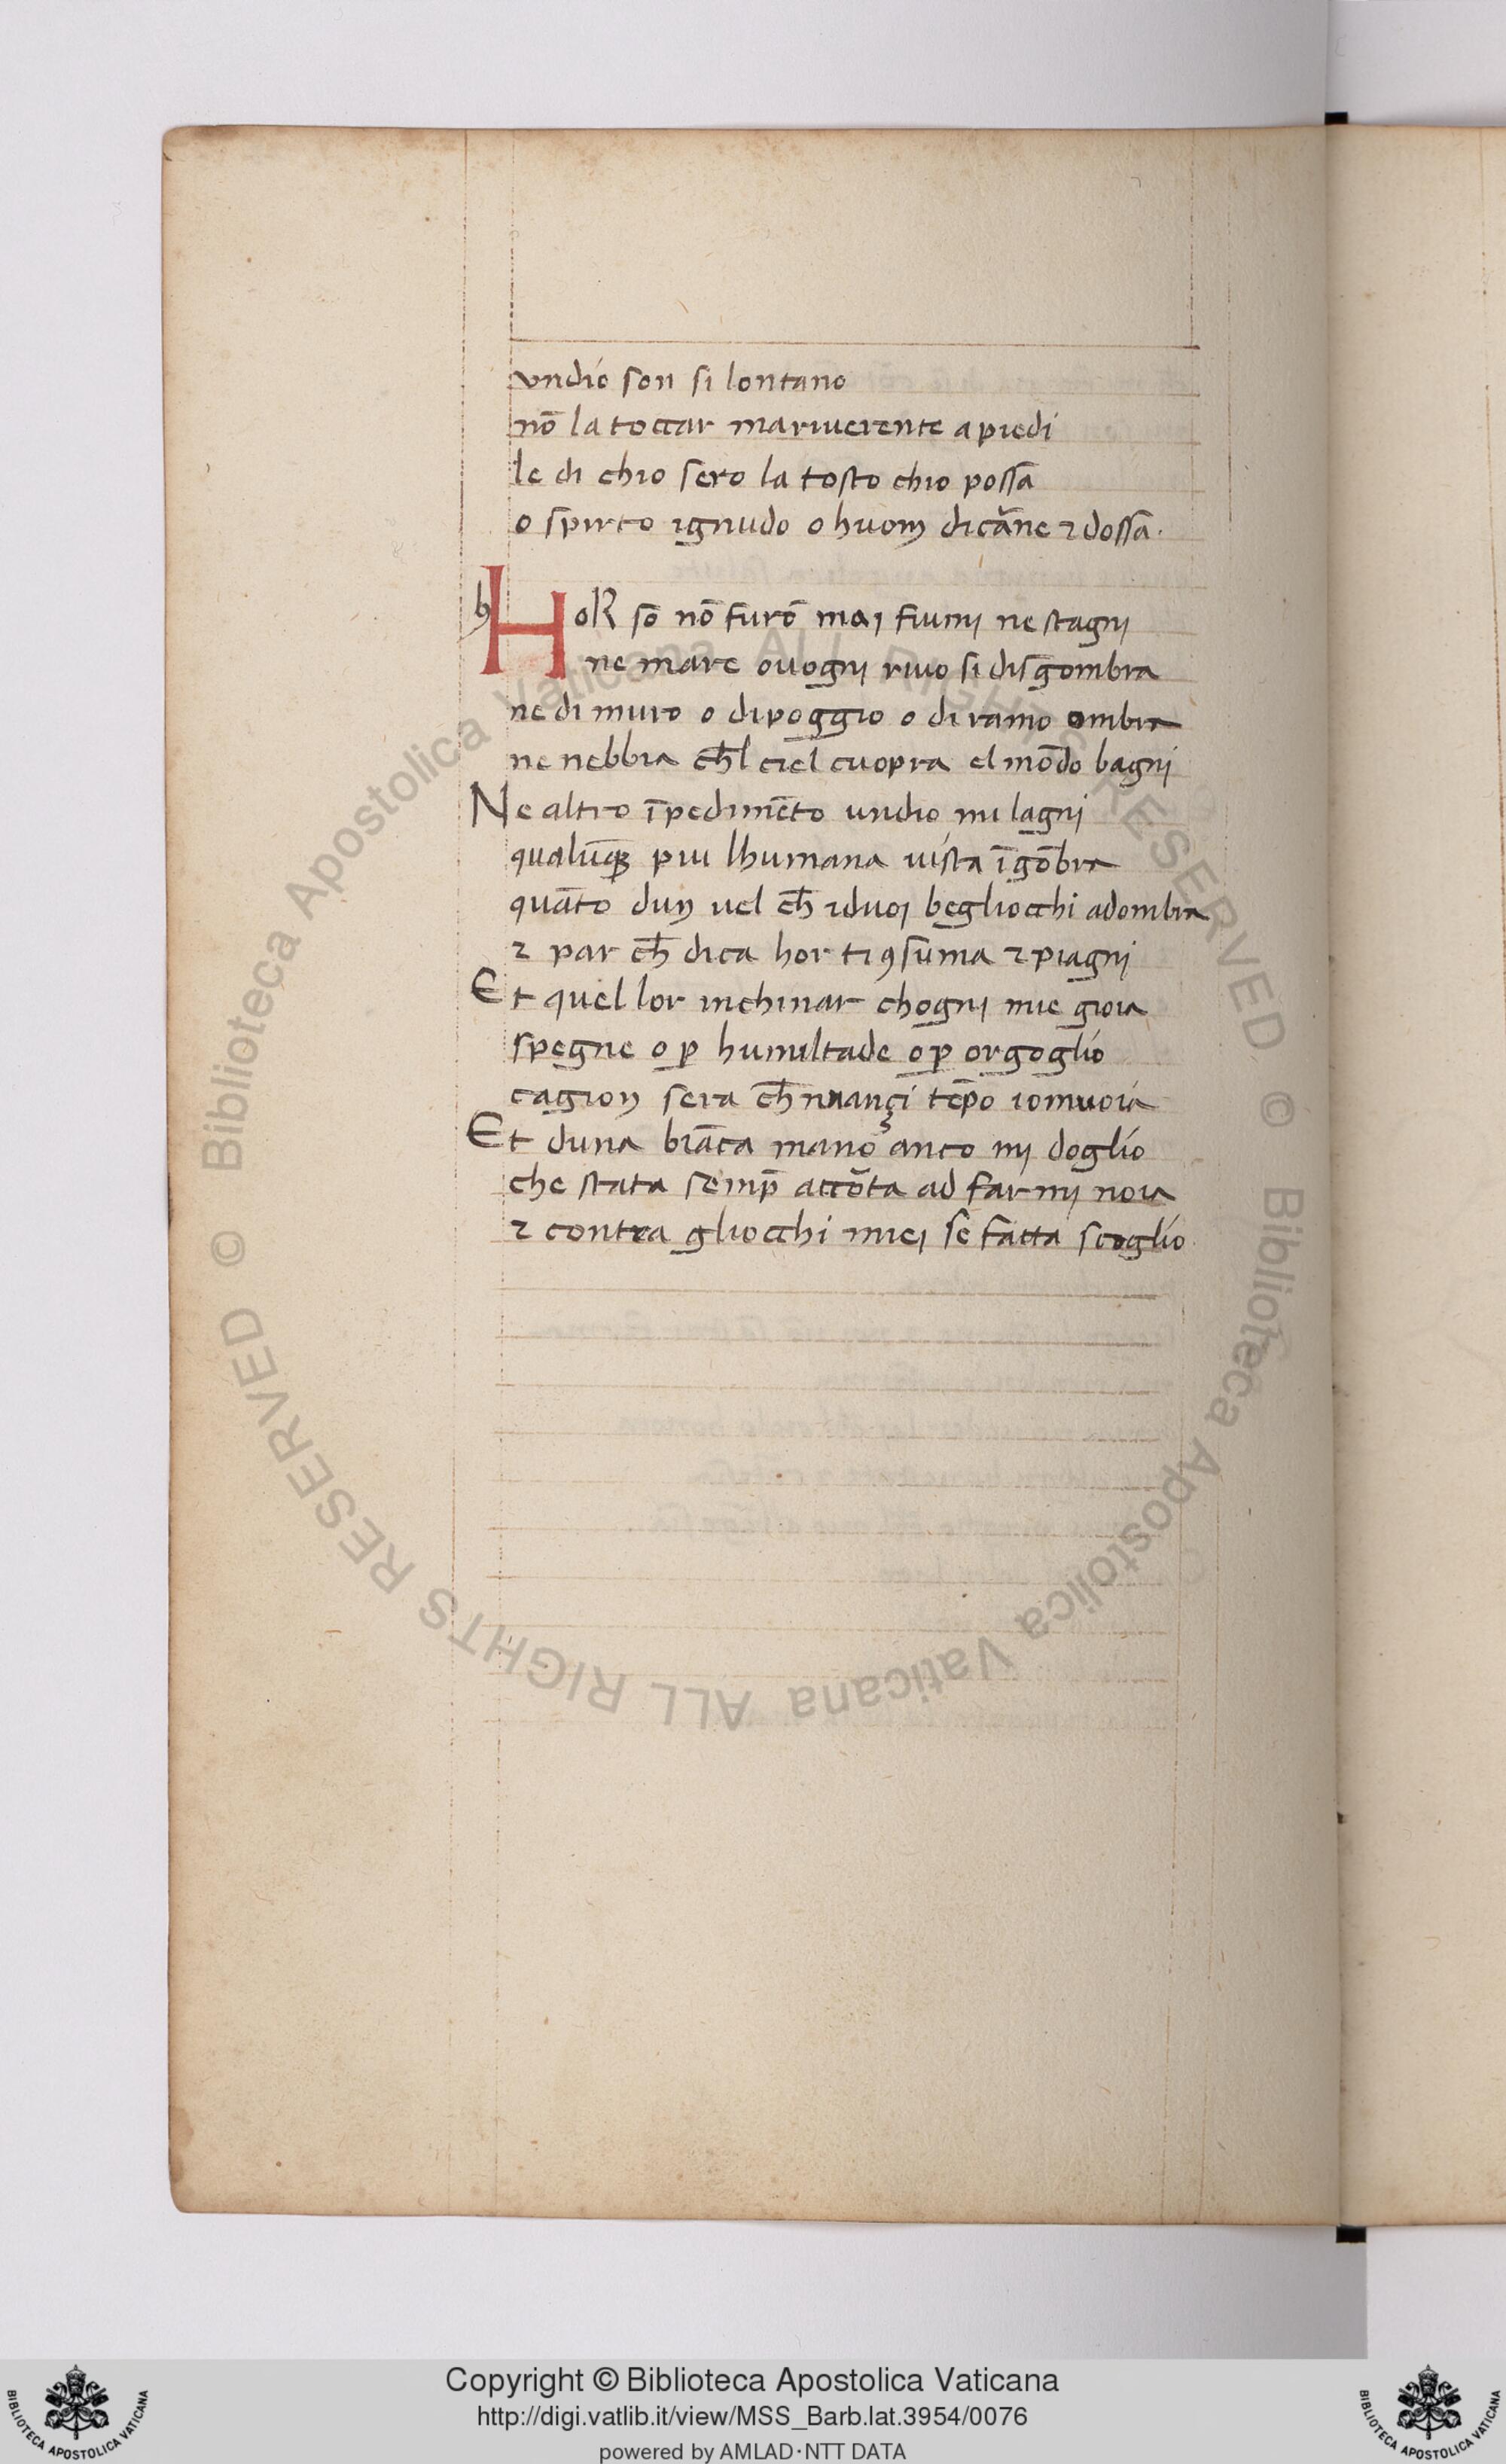 undio son si lontano
nō la toccar mariuerente a piedi
le di chio sero la tosto chio possā
o spirto ignudo o huom di cārne ⁊ dossā.
h
HoR sō nō furō mai fiumi ne stagni
ne mare ouogni riuo si disgombra
ne di muro o di poggio o di ramo ombra
ne nebbia ch̄l ciel cuopra el mōdo bagni
Ne altro īpedimēto undio mi lagni
qualūqꝫ piu lhumana uista īgōbra
quāto dun uel ch̄ ⁊duoi begliocchi adombra
⁊ par ch̄ dica hor ti ꝯsūma ⁊ piagni
Et quel lor inchinar chogni mie gioia
spegne o ꝑ humiltade o ꝑ orgoglio
cagion sera ch̄ nnançi tēpo iomuoia
Et duna biāca mano anco mi doglio
che stata semp̄ accōta ad farmi noia
⁊ contra gliocchi miei se fatta scoglio
Copyright © Biblioteca Apostolica Vaticana
http://digi.vatlib.it/view/MSS_Barb.lat.3954/0076
powered by AMLAD·NTT DATA
BIBLIOTECA APOSTOLICA VATICANA
BIBLIOTECA APOSTOLICA VATICANA
© Biblioteca Apostolica Vaticana ALL RIGHTS RESERVED
© Biblioteca Apostolica Vaticana ALL RIGHTS RESERVED